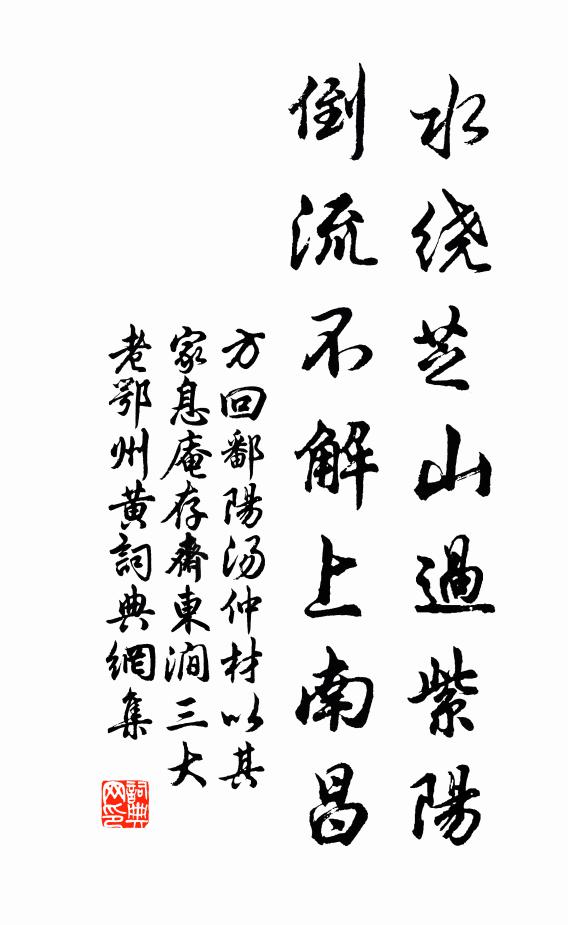 水绕芝山過紫陽
倒流不解上南昌
方回鄱陽汤仲材以其
家息庵存齋東澗三大
老鄂州黄詞典網集
詞典网印